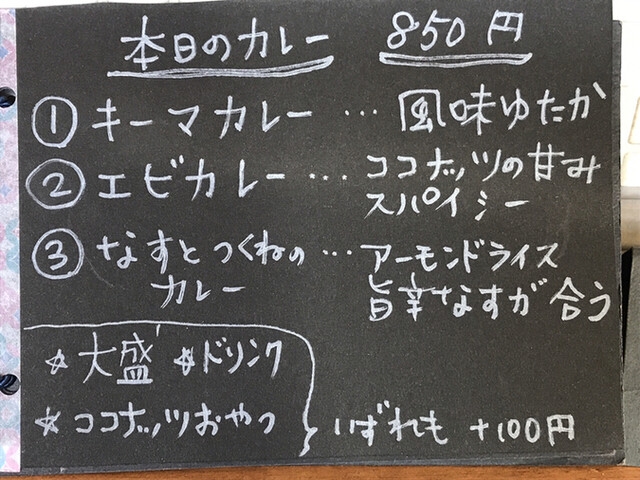 本日のカレー 850円
① キーマカレー … 風味ゆたか
② エビカレー … ココナッツの甘み
スパイシー
③ なすとつくねの … アーモンドライス
カレー 旨辛なすが合う
☆大盛 ☆ドリンク
☆ココナッツおやつ いずれも +100円